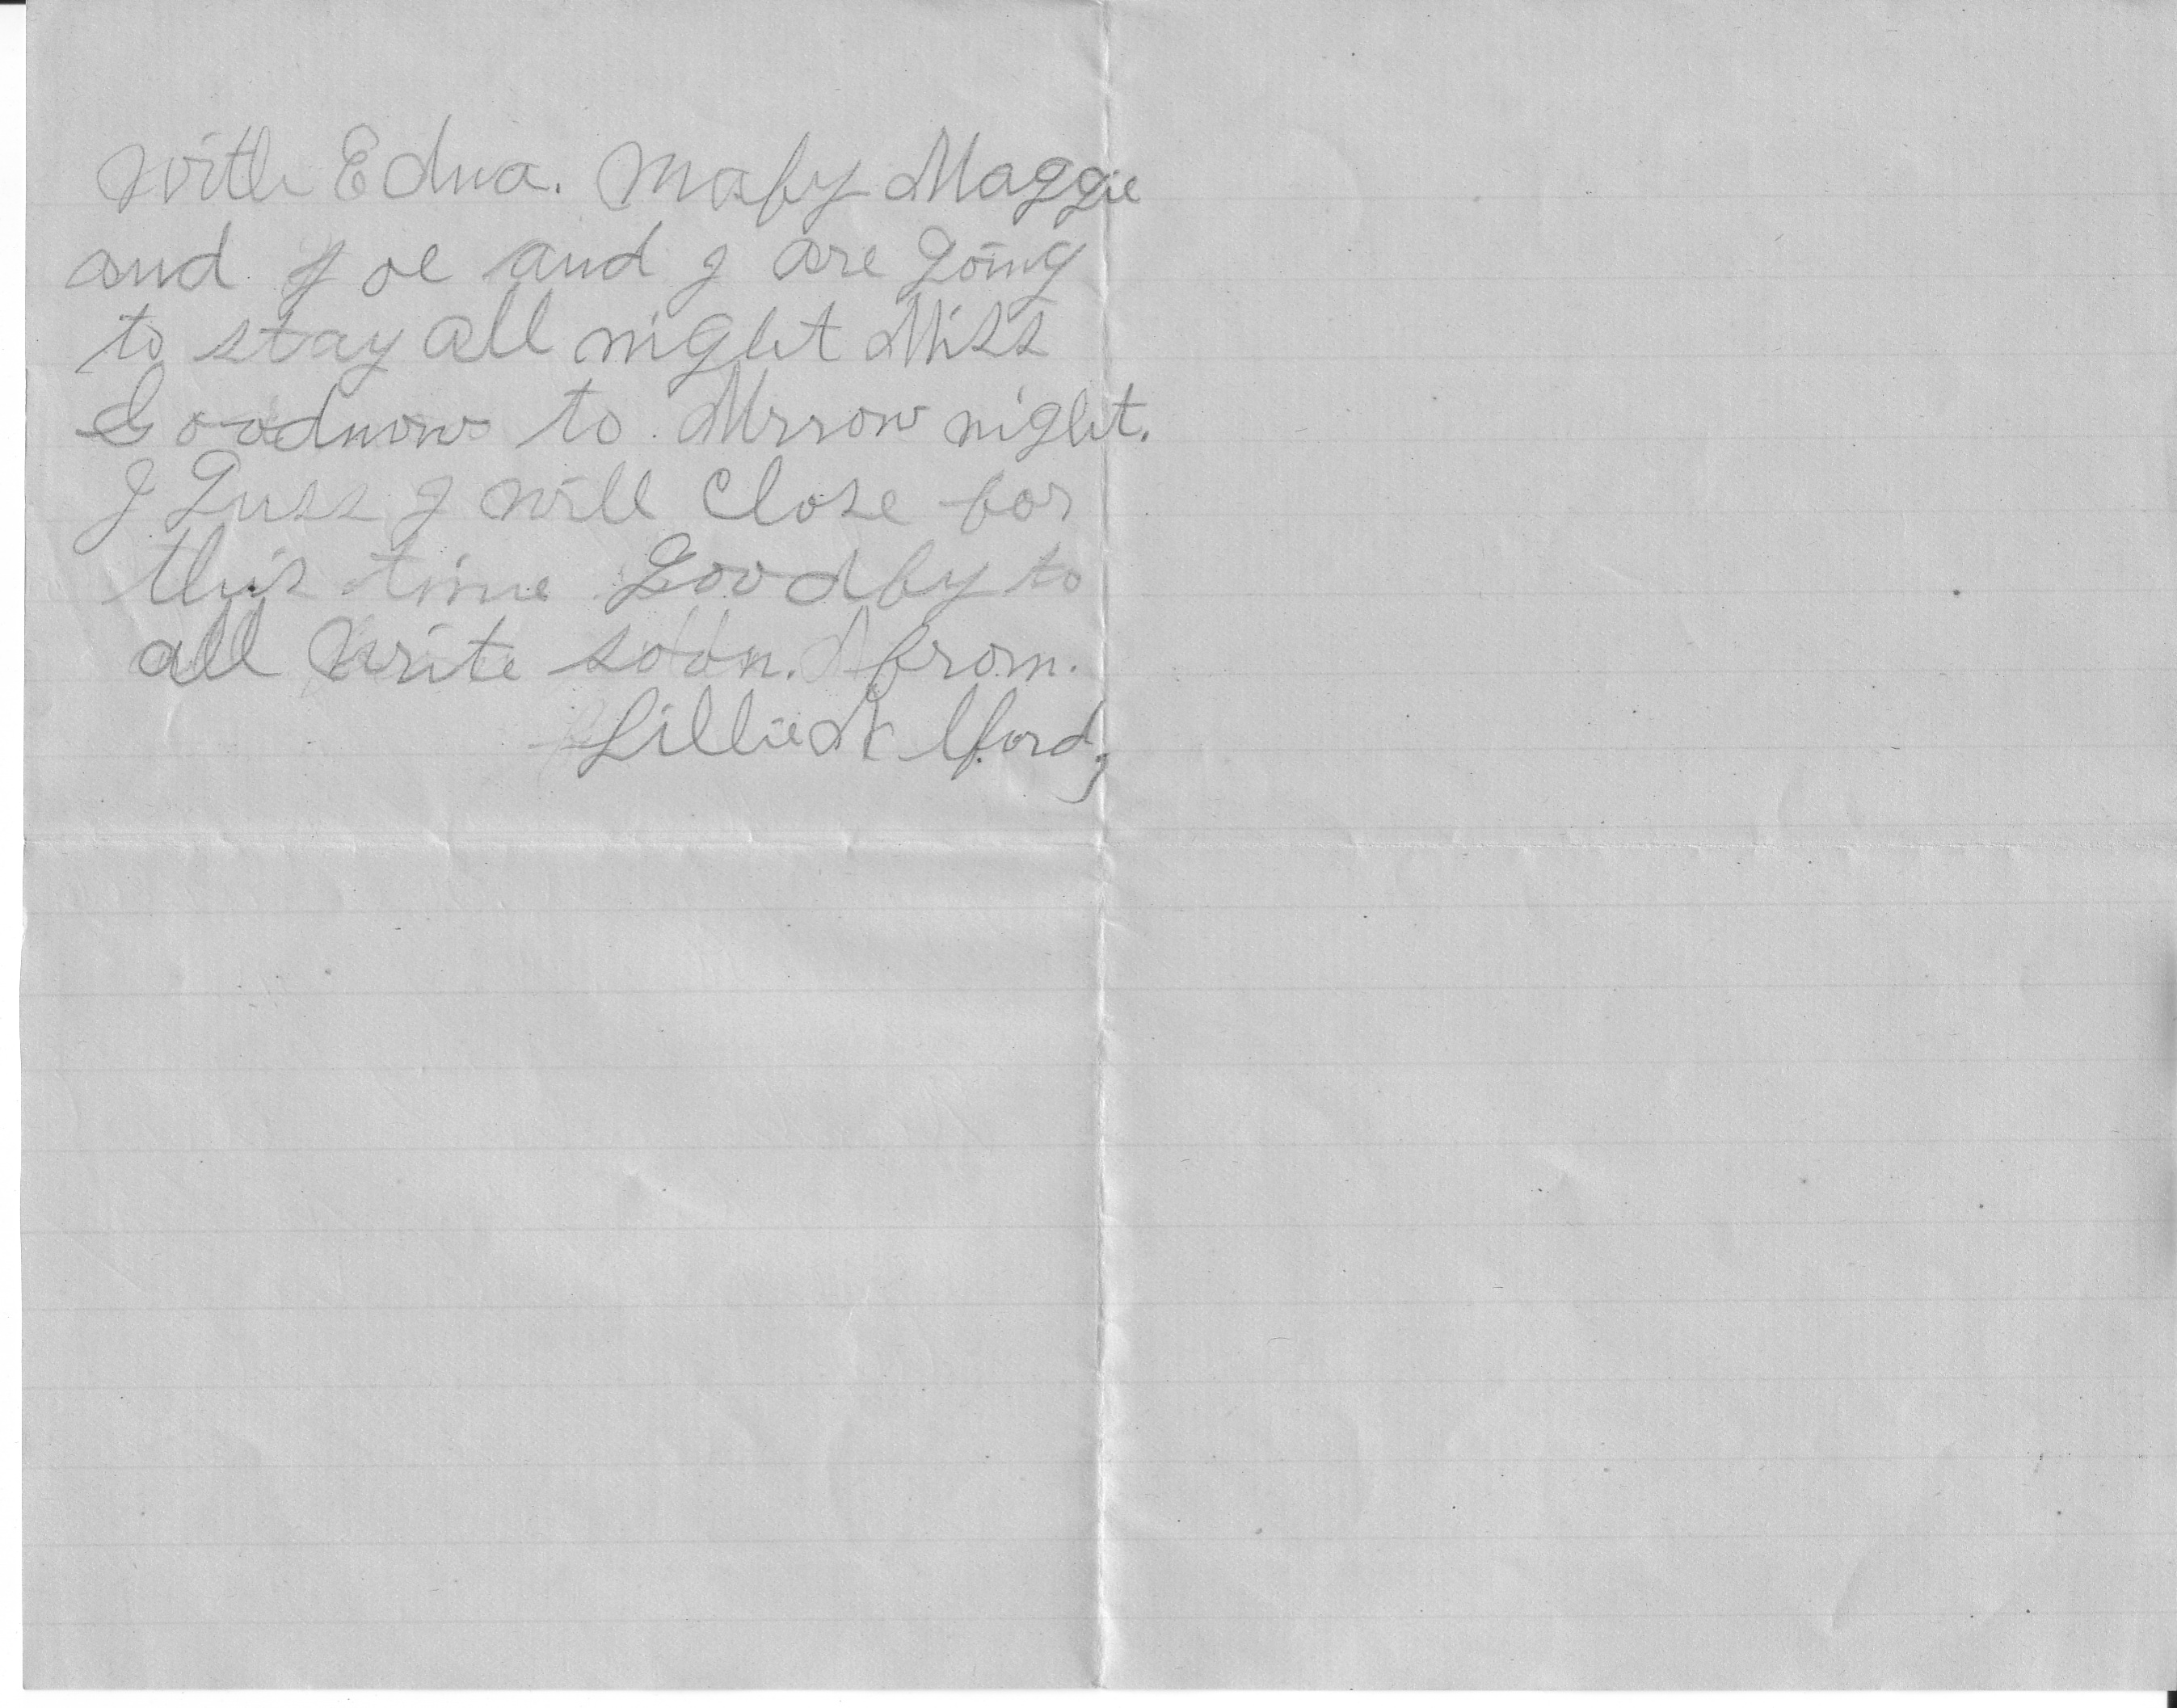 with Edna. Maby Maggie
and Joe and I are going
to stay all night Miss
Goodnows to Mrrow night.
I Guss I will close for
this time Goodby to
all write soon. from.
Lillie